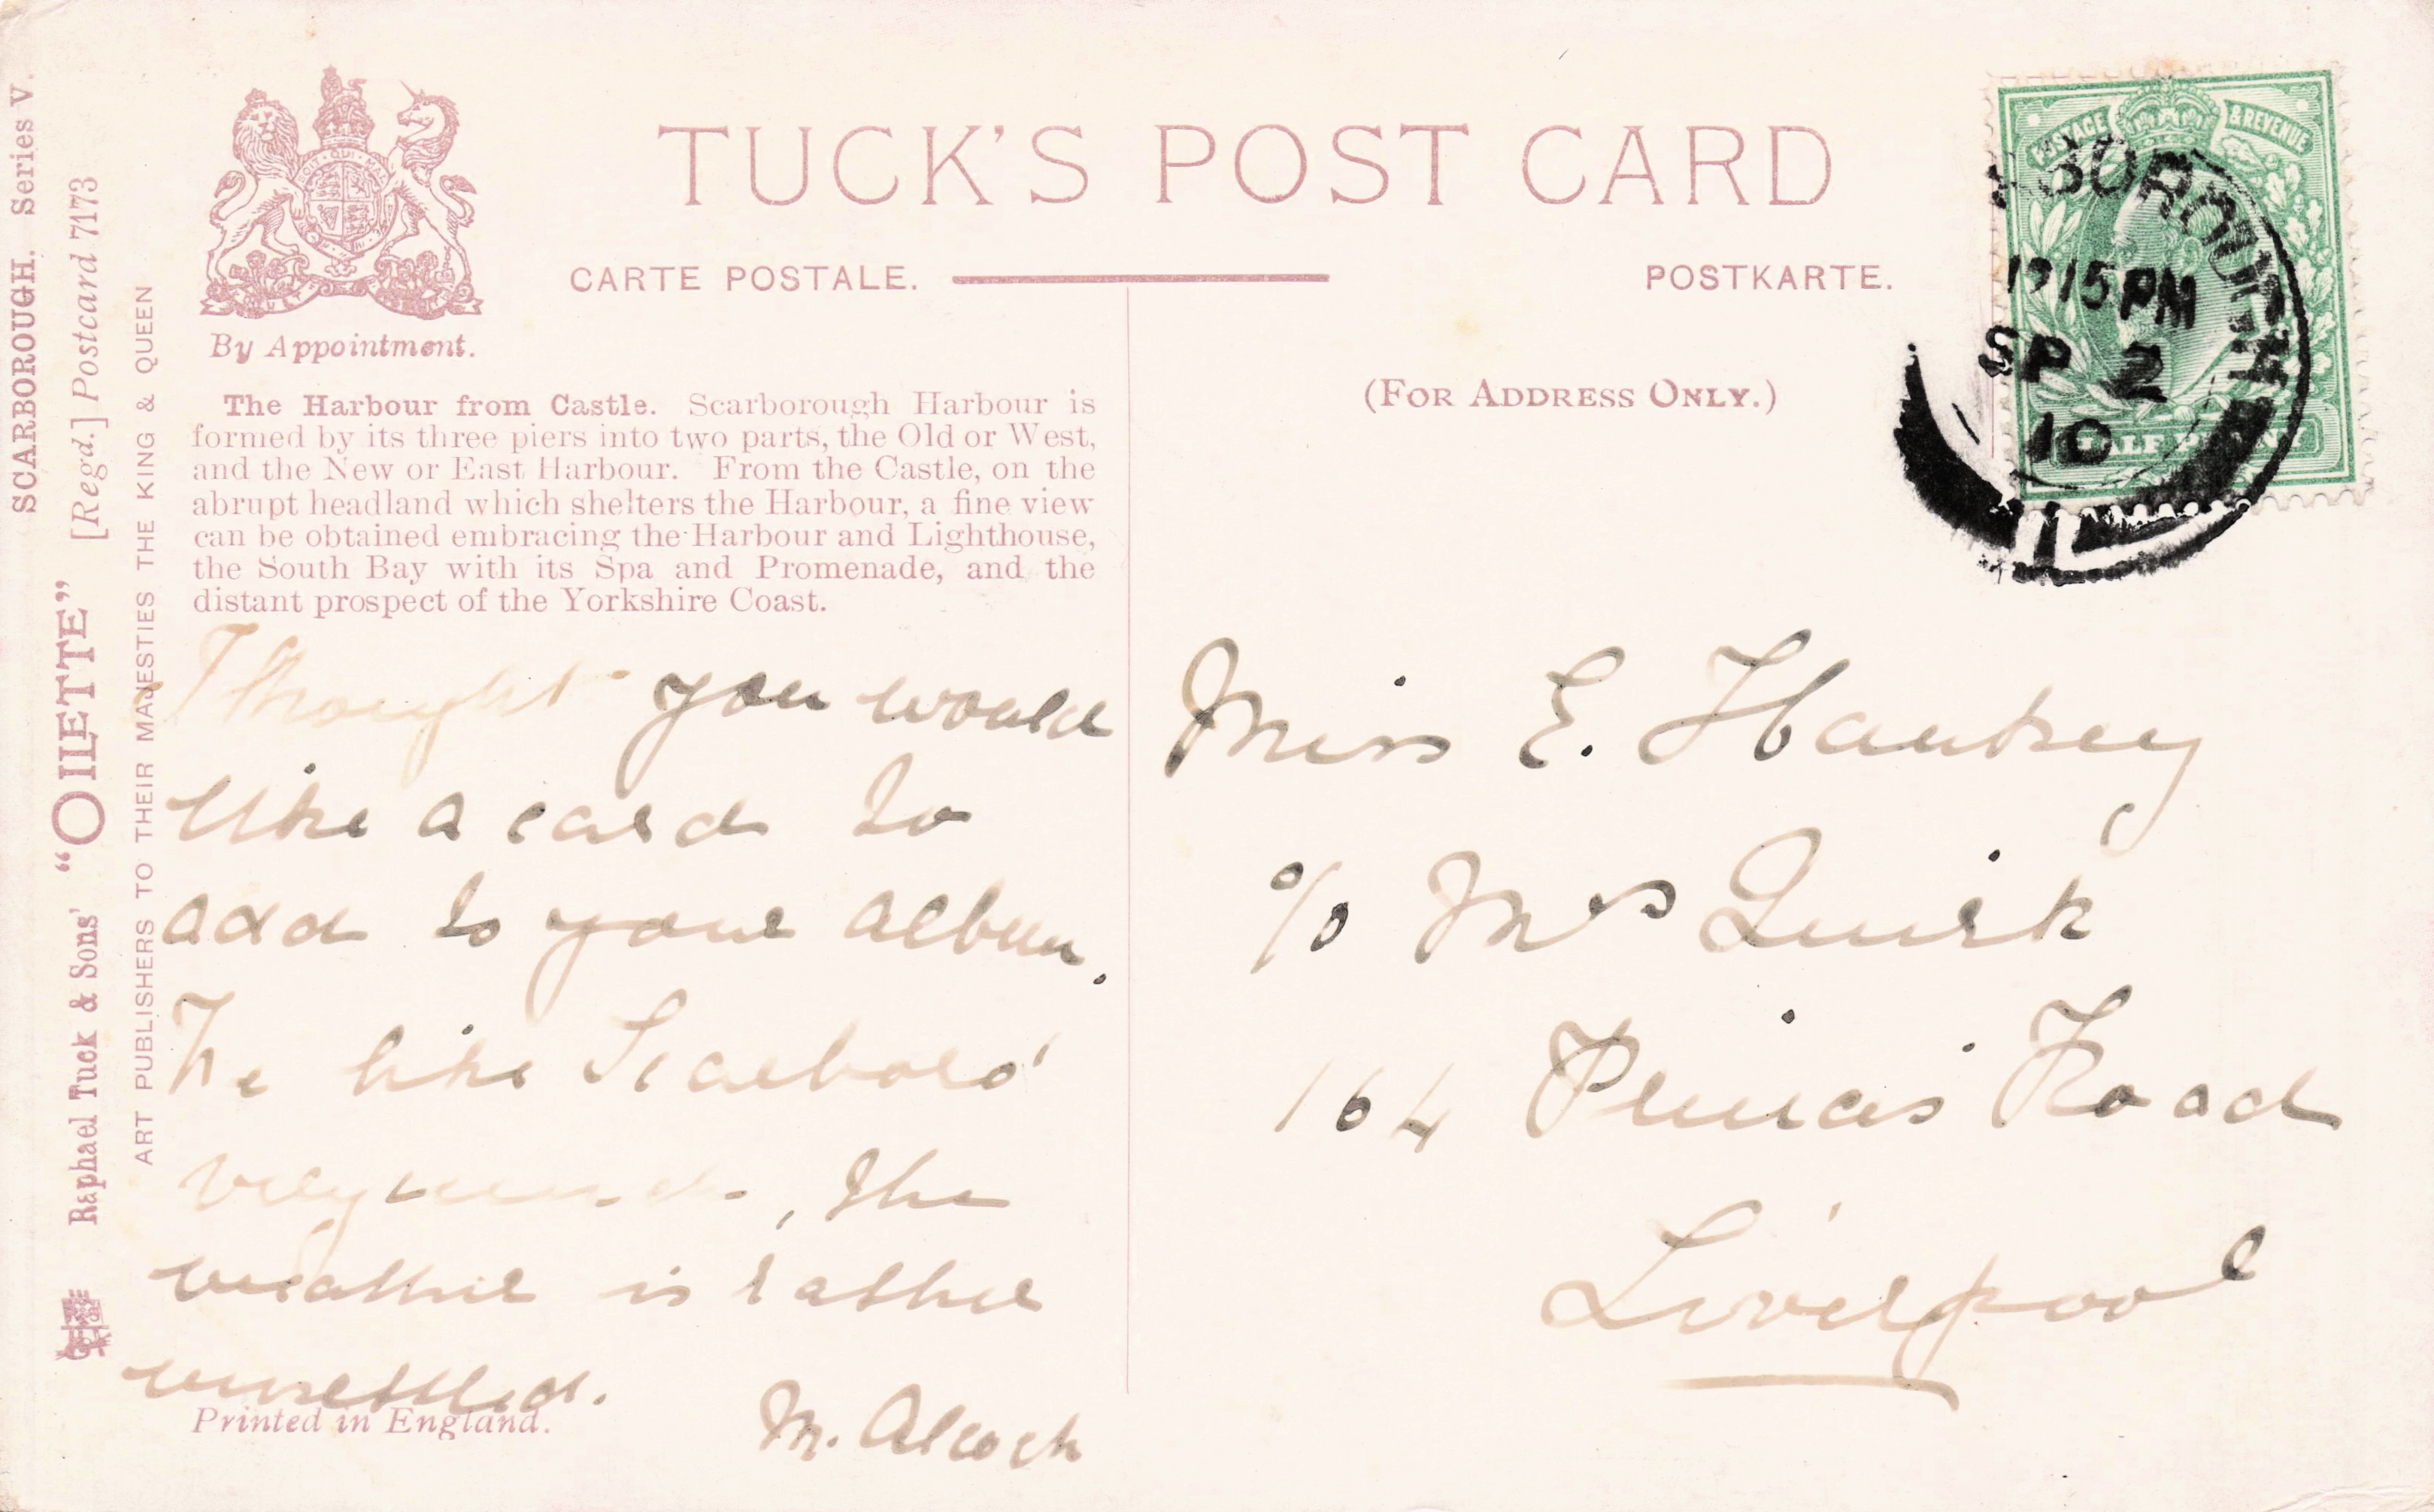 SCARBOROUGH. Series V.
Raphael Tuck & Sons' "OILETTE" [Regd.] Postcard 7173
ART PUBLISHERS TO THEIR MAJESTIES THE KING & QUEEN
By Appointment.
TUCK'S POST CARD
CARTE POSTALE.
POSTKARTE.
The Harbour from Castle. Scarborough Harbour is
formed by its three piers into two parts, the Old or West,
and the New or East Harbour. From the Castle, on the
abrupt headland which shelters the Harbour, a fine view
can be obtained embracing the Harbour and Lighthouse,
the South Bay with its Spa and Promenade, and the
distant prospect of the Yorkshire Coast.
(FOR ADDRESS ONLY.)
POSTAGE & REVENUE
HALF PENNY
BOROUGH
15 PM
SP 2
10
Thought you would
like a card to
add to your album.
We like Scarboro'
very much, the
weather is rather
unsettled.
M. Alcock
Printed in England.
Miss E.
c/o Mrs Quirk
164 Princes Road
Liverpool